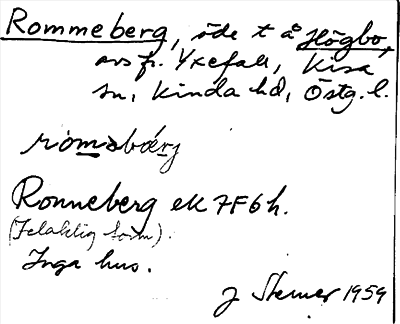 Rommeberg, öde t å Högbo,
avs fr. Yxefall, Kisa
sn, Kinda hd, Östg. l.
roməbærj
Ronneberg ek 7F6h.
(Felaktig form).
Inga hus.
J Sterner 1959